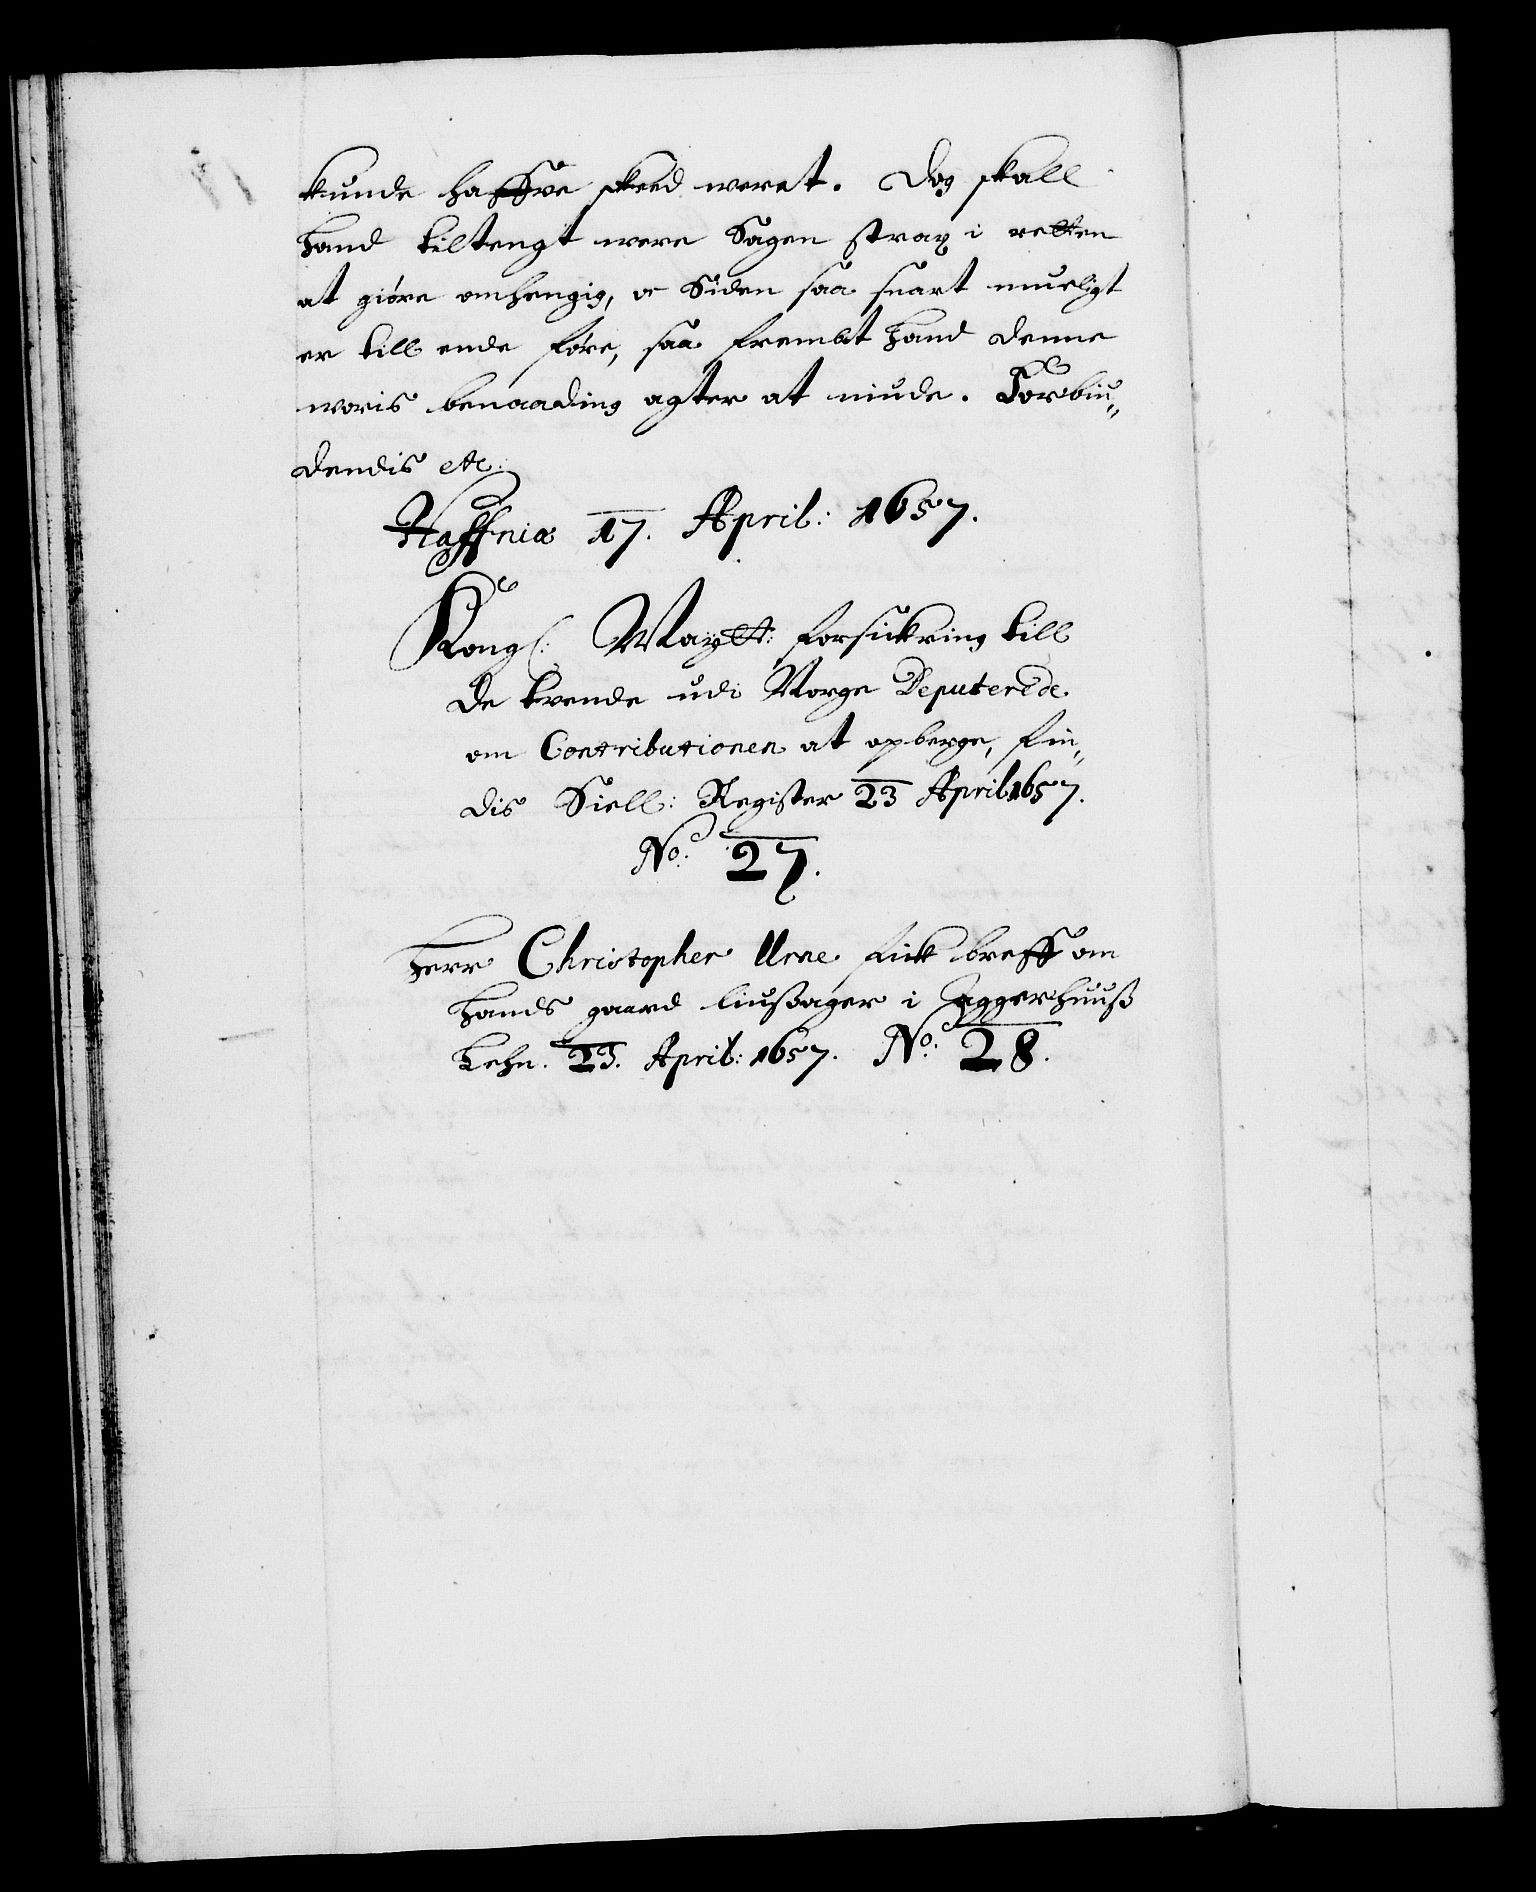 kunde haffve skeed weret. Dog skall
hand tiltengt were Sagen strax i retten
at giøre anhengig, oc Siden saa snart mueligt
er till ende føre, saa frembt hand denne
woris benaading agter at niude. Forbiu„
dendis etc:
Haffniæ 17. April: 1657.
Kong: Maytt: forsickring till
de trende udi Norge Deputerede
om Contributionen at opberge, fin„
dis Siell: Register 23 April 1657.
No: 27.
Herr Christopher Urne fick breff om
hands gaard liusager i Aggerhuuß
Lehn. 23. April: 1657. No: 28.